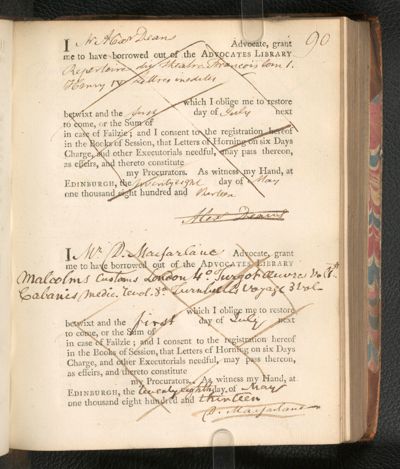 90
I Mr Alexr Deans Advocate, grant
me to have borrowed out of the ADVOCATES LIBRARY
Repertoire du Theatre Francois tom 1.
Henry IV Lettres inedites
which I oblige me to restore
betwixt and the first day of July next
to come, or the Sum of
in case of Failzie; and I consent to the registration hereof
in the Books of Session, that Letters of Horning on six Days
Charge, and other Executorials needful, may pass thereon,
as effeirs, and thereto constitute
my Procurators. As witness my Hand, at
EDINBURGH, the twentyeight day of May
one thousand eight hundred and thirteen
Alexr Deans
I Mr D. Macfarlane Advocate, grant
me to have borrowed out of the ADVOCATES LIBRARY
Malcolms Customs London 4o Turgot Œuvres Vol
Cabanis Medic. Revol. 8o Turnbulls Voyage 3 Vol
which I oblige me to restore
betwixt and the first day of July next
to come, or the Sum of
in case of Failzie; and I consent to the registration hereof
in the Books of Session, that Letters of Horning on six Days
Charge, and other Executorials needful, may pass thereon,
as effeirs, and thereto constitute
my Procurators. As witness my Hand, at
EDINBURGH, the twenty eighth day of May
one thousand eight hundred and thirteen
D. Macfarlane